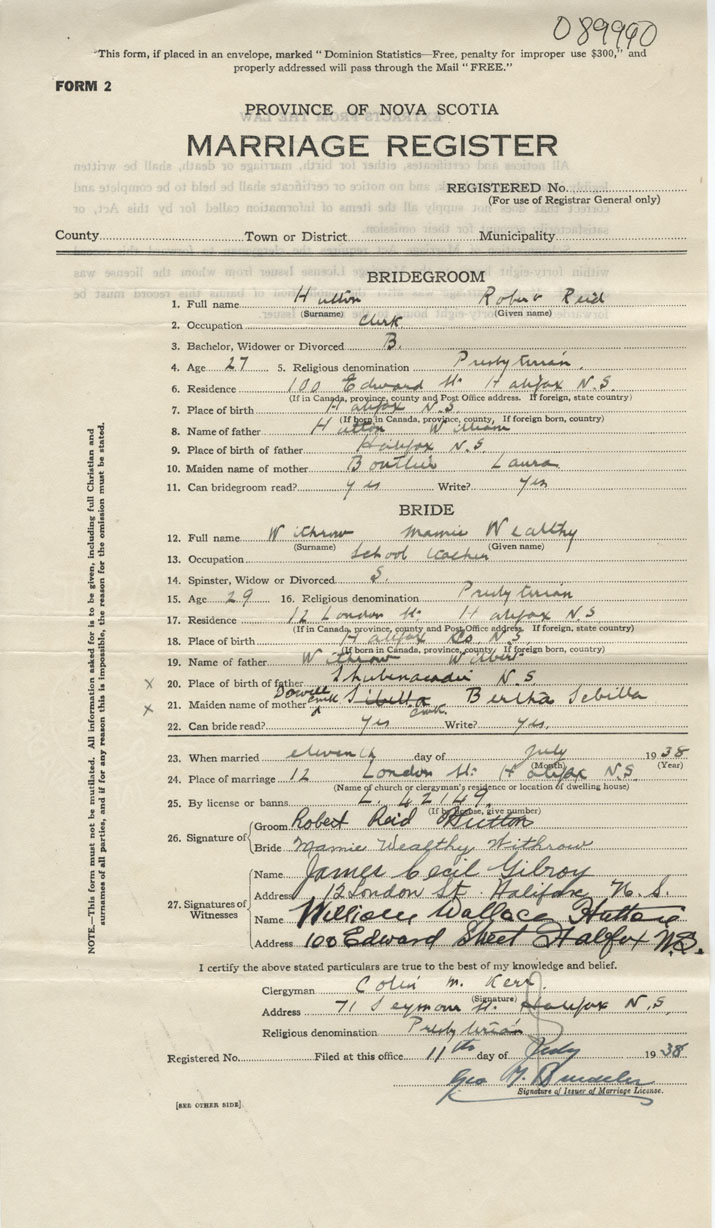 089990
"This form, if placed in an envelope, marked "Dominion Statistics—Free, penalty for improper use $300," and
properly addressed will pass through the Mail "FREE."
FORM 2
PROVINCE OF NOVA SCOTIA
MARRIAGE REGISTER
REGISTERED No.
(For use of Registrar General only)
County Town or District Municipality
BRIDEGROOM
1. Full name Hutton Robert Reid
(Surname) (Given name)
2. Occupation Clerk
3. Bachelor, Widower or Divorced B.
4. Age 27 5. Religious denomination Presbyterian
6. Residence 100 Edward St. Halifax N.S.
(If in Canada, province, county and Post Office address. If foreign, state country)
7. Place of birth Halifax N.S.
(If born in Canada, province, county, If foreign born, country)
8. Name of father Hutton William
9. Place of birth of father Halifax N.S.
10. Maiden name of mother Boutlier Laura
11. Can bridegroom read? yes Write? yes
BRIDE
12. Full name Withrow Mamie Wealthy
(Surname) (Given name)
13. Occupation School teacher
14. Spinster, Widow or Divorced S.
15. Age 29 16. Religious denomination Presbyterian
17. Residence 12 London St. Halifax N.S
(If in Canada, province, county and Post Office address. If foreign, state country)
18. Place of birth Halifax Co. N.S.
(If born in Canada, province, county, If foreign born, country)
19. Name of father Withrow Wilbert
x 20. Place of birth of father Shubenacadie N.S.
x 21. Maiden name of mother Dowell Sibella Bertha Sebilla
22. Can bride read? yes Write? yes.
23. When married eleventh day of July 1938
(Month) (Year)
24. Place of marriage 12 London St. Halifax N.S.
(Name of church or clergyman's residence or location of dwelling house)
25. By license or banns L. 42149.
(If by license, give number)
26. Signature of Groom Robert Reid Hutton
Bride Mamie Wealthy Withrow
27. Signatures of Witnesses
Name James Cecil Gilroy
Address 12 London St. Halifax N.S.
Name William Wallace Hutton
Address 100 Edward Street Halifax N.S.
I certify the above stated particulars are true to the best of my knowledge and belief.
Clergyman Colin M. Kerr.
(Signature)
Address 71 Seymour St. Halifax N.S.
Religious denomination Presbyterian
Registered No. Filed at this office 11th day of July 1938
Geo M.
Signature of Issuer of Marriage License.
[SEE OTHER SIDE].
NOTE.—This form must not be mutilated. All information asked for is to be given, including full Christian and
surnames of all parties, and if for any reason this is impossible, the reason for the omission must be stated.